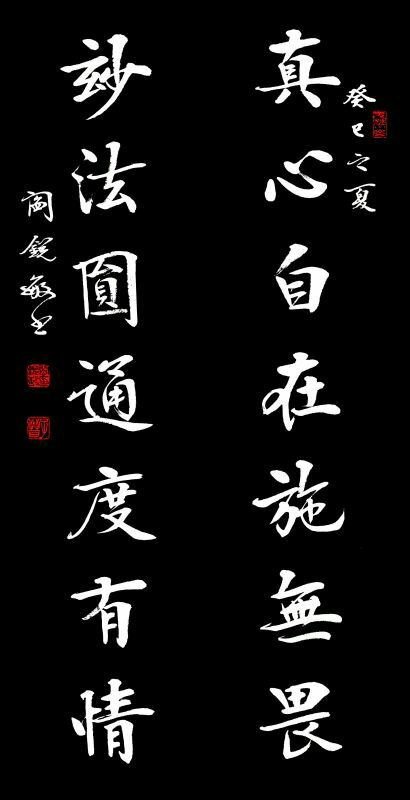 癸巳之夏
真心自在施無畏
玅法圓通度有情
閻銳敏書